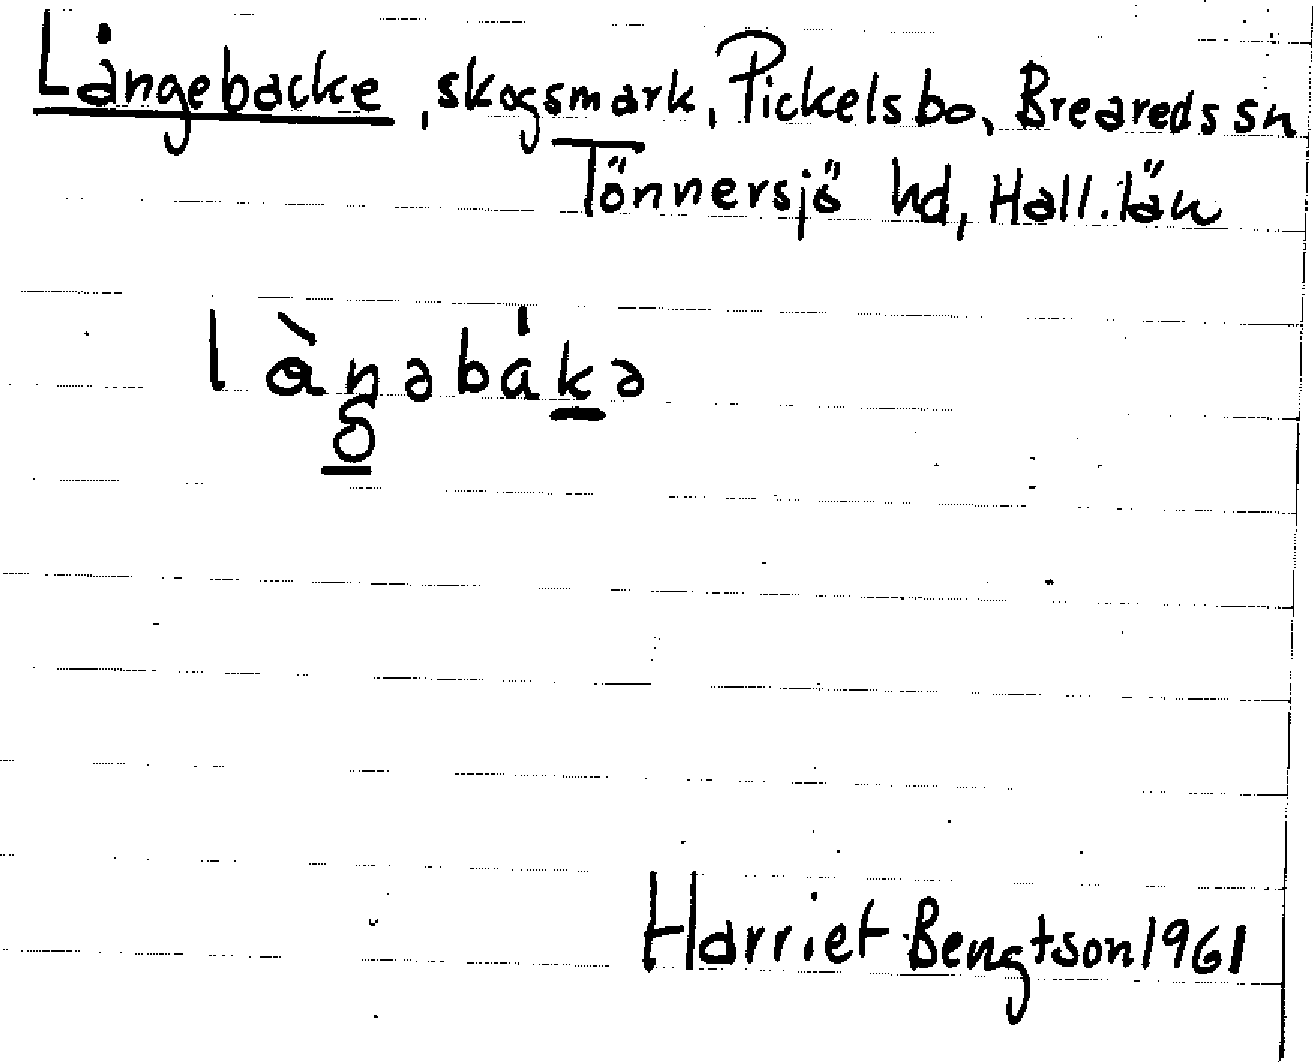 Långebacke, skogsmark, Pickelsbo, Breareds sn
Tönnersjö hd, Hall. län
Harriet Bengtson 1961